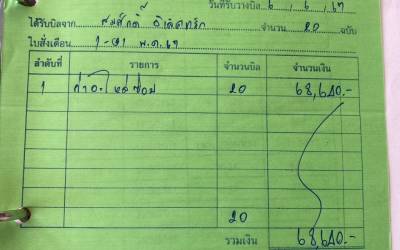 วันที่รับวางบิล 6 / 6 / 67
ได้รับบิลจาก สมศักดิ์ อิเล็คทริก จำนวน 20 ฉบับ
ใบสั่งเดือน 1-31 พ.ค. 67
ลำดับที่ รายการ จำนวนบิล จำนวนเงิน
1 ค่าอะไหล่ซ่อม 20 68,640.-
20
รวมเงิน 68,640.-